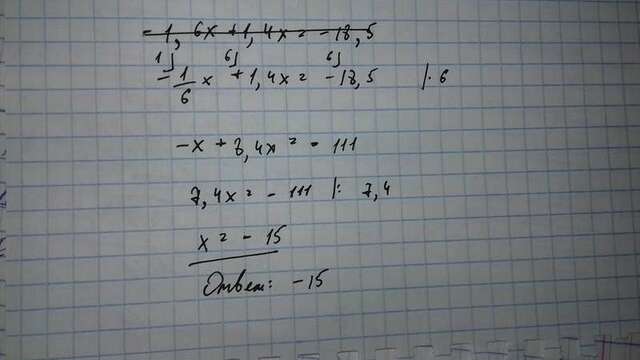 - 1, 6x + 1, 4x = - 18, 5
1) 6) 6)
- 1/6 x + 1, 4x = - 18, 5 | · 6
- x + 8, 4x = - 111
7, 4x = - 111 | : 7, 4
x = - 15
Ответ: - 15